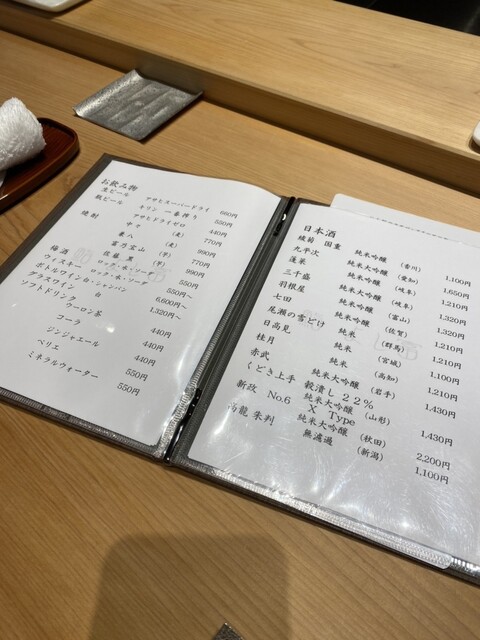 お飲み物
生ビール アサヒスーパードライ 660円
瓶ビール キリン 一番搾り 550円
アサヒドライゼロ 440円
焼酎 中々 (麦) 770円
兼八 (麦) 990円
富乃宝山 (芋) 770円
佐藤 黒 (芋) 990円
梅酒 ロック・水・ソーダ 550円
ウィスキー ロック・水・ソーダ 550円~
ボトルワイン 白・シャンパン 6,600円~
グラスワイン 白 1,320円~
ソフトドリンク
ウーロン茶 440円
コーラ 440円
ジンジャエール 440円
ペリエ 550円
ミネラルウォーター 550円
日本酒
綾菊 国重 純米吟醸 (香川) 1,100円
九平次 純米大吟醸 (愛知) 1,650円
蓬莱 純米吟醸 (岐阜) 1,210円
三千盛 純米大吟醸 (岐阜) 1,320円
羽根屋 純米吟醸 (富山) 1,320円
七田 純米 (佐賀) 1,210円
尾瀬の雪どけ 純米吟醸 (群馬) 1,210円
日高見 純米 (宮城) 1,100円
桂月 純米 (高知) 1,210円
赤武 純米大吟醸 (岩手) 1,430円
くどき上手 穀潰し 22%
純米大吟醸 (山形) 1,430円
新政 No.6 X Type
純米大吟醸 (秋田) 2,200円
朱判 無濾過 (新潟) 1,100円